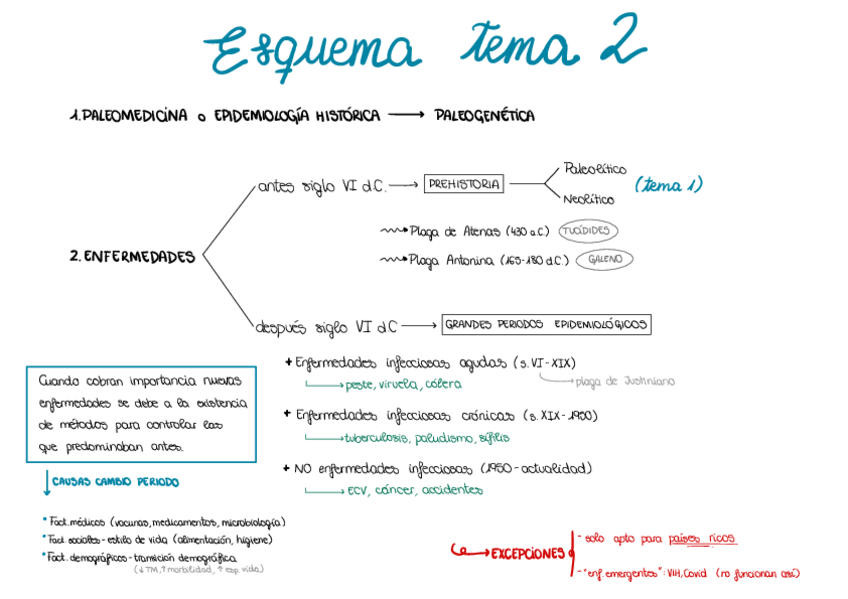 Esquema tema 2
1. PALEOMEDICINA o EPIDEMIOLOGÍA HISTÓRICA → PALEOGENÉTICA
Paleolítico
antes siglo VI d.C. → PREHISTORIA
(tema 1)
Neolítico
Plaga de Atenas (430 a.C.) TUCÍDIDES
2. ENFERMEDADES
Plaga Antonina (165-180 d.C.) GALENO
después siglo VI d.C → GRANDES PERIODOS EPIDEMIOLÓGICOS
+ Enfermedades infecciosas agudas (s. VI-XIX)
peste, viruela, cólera
plaga de Justiniano
+ Enfermedades infecciosas crónicas (s. XIX-1950)
tuberculosis, paludismo, sífilis
+ NO enfermedades infecciosas (1950-actualidad)
ECV, cáncer, accidentes
Cuando cobran importancia nuevas
enfermedades se debe a la existencia
de métodos para controlar las
que predominaban antes.
CAUSAS CAMBIO PERIODO
* Fact. médicos (vacunas, medicamentos, microbiología)
* Fact. sociales - estilo de vida (alimentación, higiene)
* Fact. demográficos - transición demográfica
(↓TM, ↑morbilidad, ↑ esp. vida)
→ EXCEPCIONES
- solo apto para países ricos
- "enf. emergentes": VIH, Covid (no funcionan así)